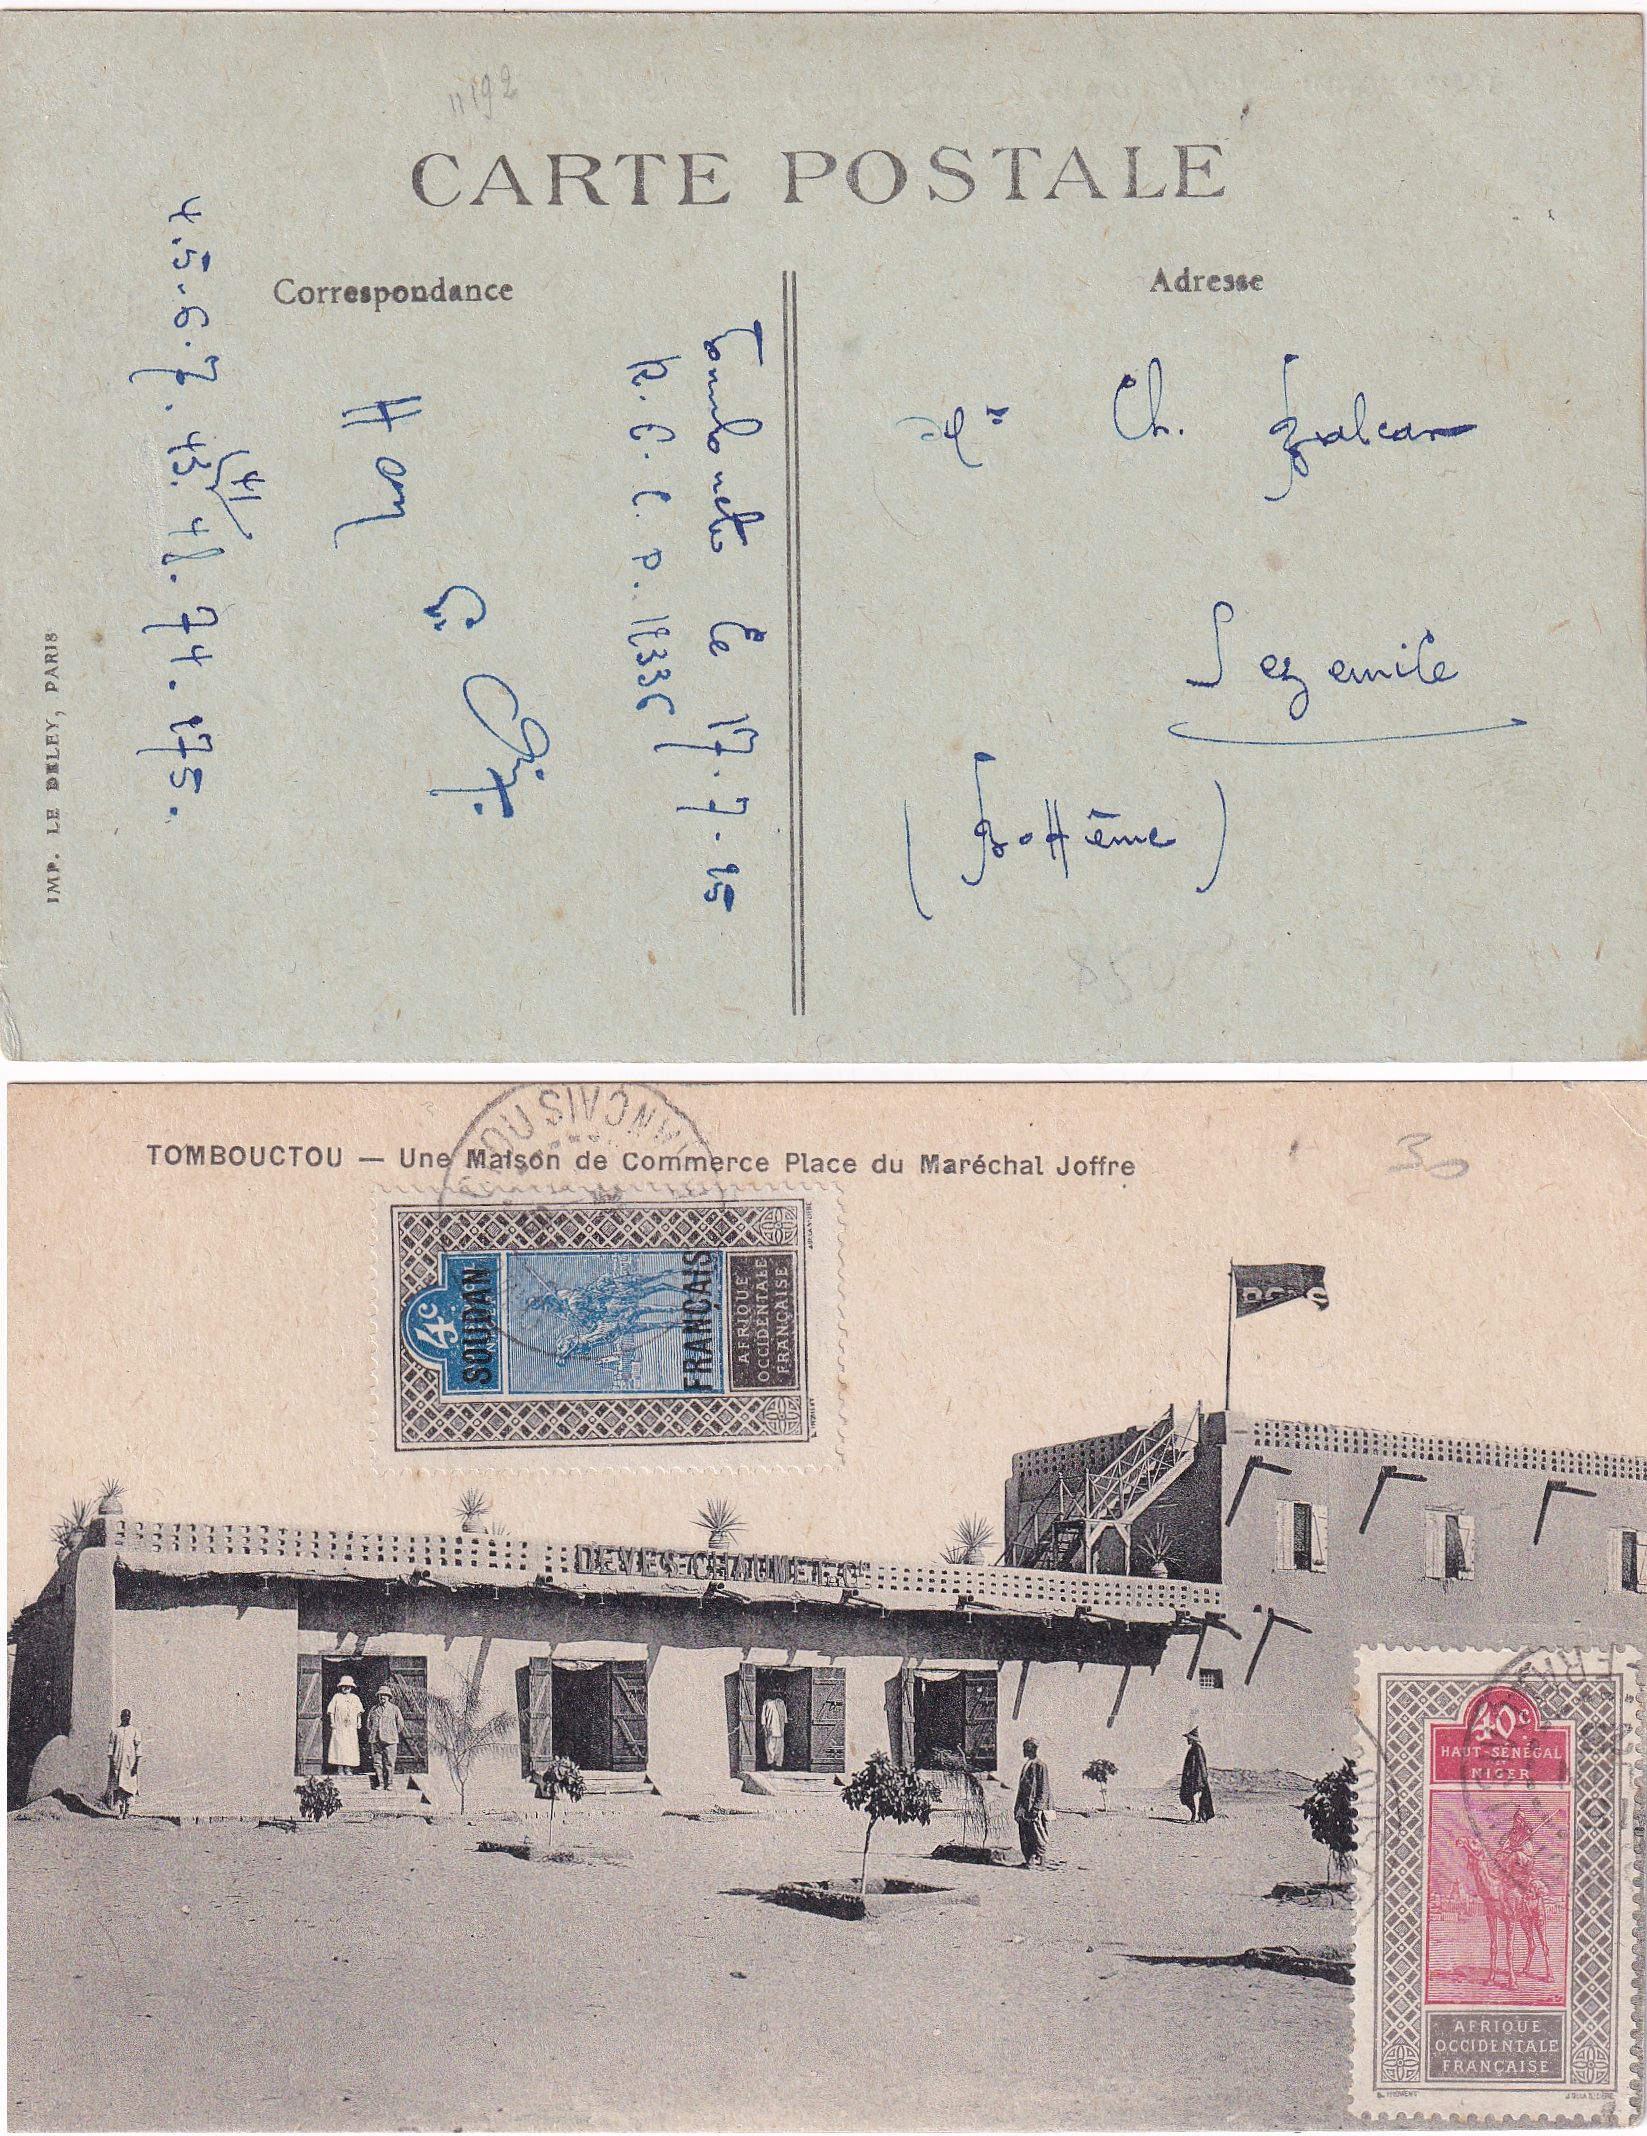 11192
CARTE POSTALE
Correspondance
Adresse
Tombouctou le 17.7.25
R.C.C.P. 1833C
4.5.6.7. 43. 48. 74. 175.
44
Ch.
Sezemile
(BoHême)
85
IMP. LE DELEY, PARIS
TOMBOUCTOU — Une Maison de Commerce Place du Maréchal Joffre
30
4c
SOUDAN
FRANÇAIS
AFRIQUE
OCCIDENTALE
FRANÇAISE
DEVES CHAUMET & Cie
40c
HAUT-SÉNÉGAL
NIGER
AFRIQUE
OCCIDENTALE
FRANÇAISE